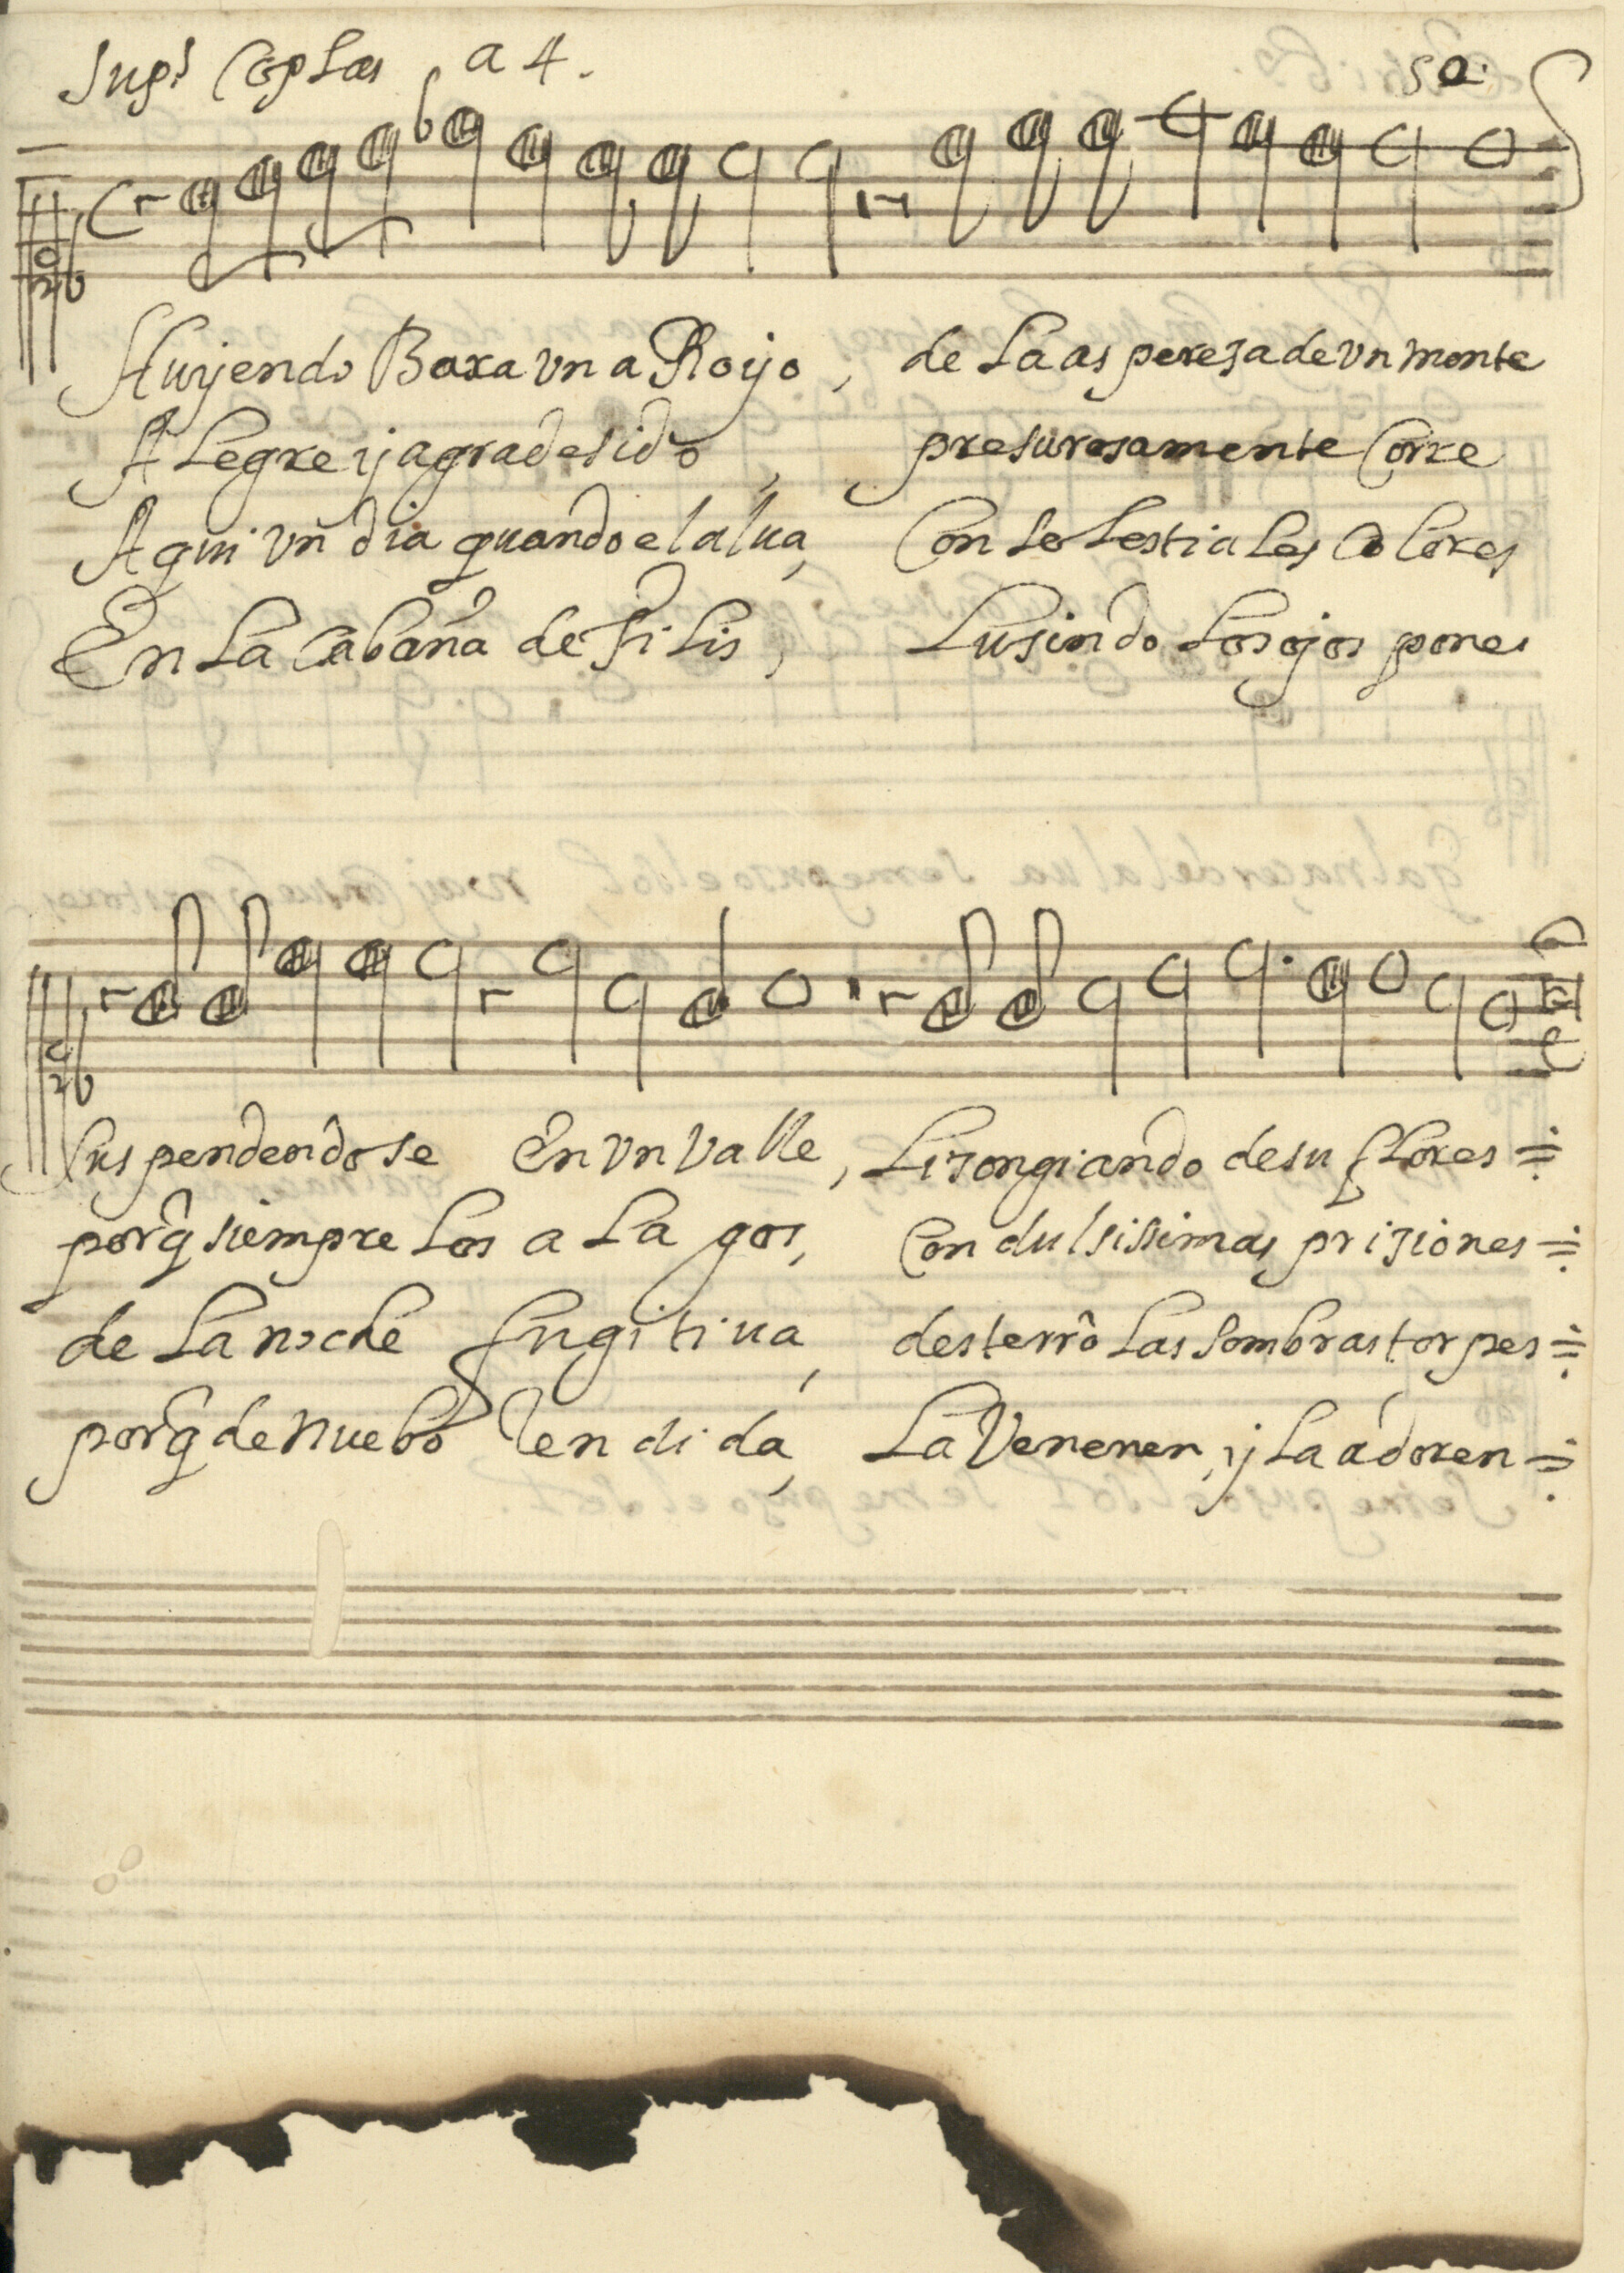 Coplas a 4.
50.
Huyendo Baxa vn aRoyo, de La aspereza de vn monte
ALegre y agradesido, presurosamente Corre
Aqui vn dia quando el alua, Con selestiales Colores
En La Cabaña de FiLis, Lusindo Los ojos pones
suspendendose En vn Valle, Lisongiando de su fLores
porq̂ siempre Los aLagos, Con dulsissimas prisiones
de La noche fugitiua, desterrô Las sombras torpes
porq̂ de nuebo Rendida, La Veneren, y La adoren